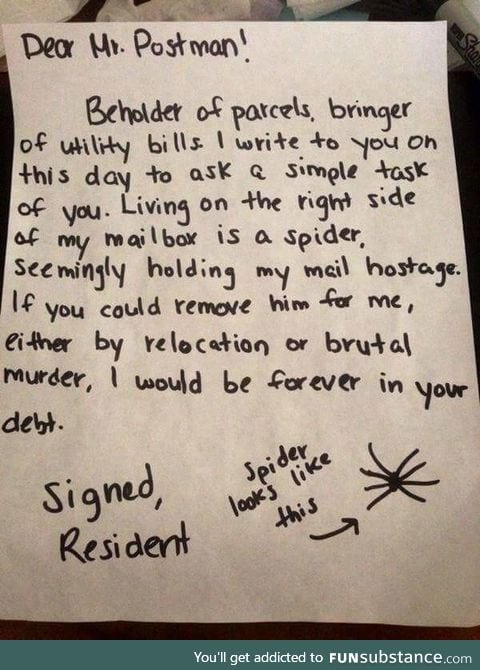 Dear Mr. Postman!
Beholder of parcels, bringer
of utility bills I write to you on
this day to ask a simple task
of you. Living on the right side
of my mailbox is a spider,
seemingly holding my mail hostage.
If you could remove him for me,
either by relocation or brutal
murder, I would be forever in your
debt.
Signed,
Resident
Spider
looks like
this
You'll get addicted to FUNsubstance.com